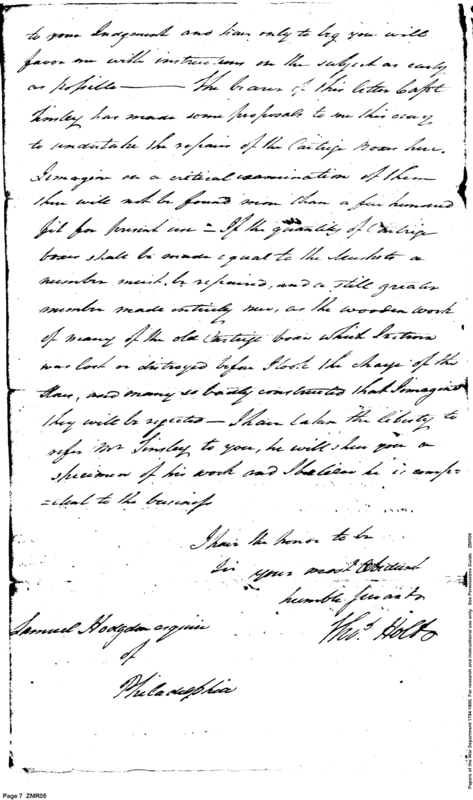 to your Judgment and have only to beg you will
favor me with instructions on the subject as early
as possible —— The bearer of this letter Capt
Tinsley has made some proposals to me this way
to undertake the repairs of the Cartrige Boxes here.
I imagine on a critical examination of them
there will not be found more than a few hundred
fit for present use = If the quantity of Cartrige
boxes shall be made equal to the Muskets a
number must be repaired, and a still greater
number made entirely new, as the wooden work
of many of the old Cartrige boxes which
was lost or distroyed before I took the charge of the
Stores, and many so badly constructed that I imagine
they will be rejected — I have taken the liberty to
refer Mr Tinsley to you, he will shew you a
specimen of his work and I believe he is comp=
=etent to the business
I have the honor to be
Sir your most Obedient
humble servant
Thos. Holt
Samuel Hodgdon esquire
of
Philadelphia
Page 7 ZMR05
Papers of the War Department 1784-1800. For research and instructional use only. See Permissions Guide. ZMR05